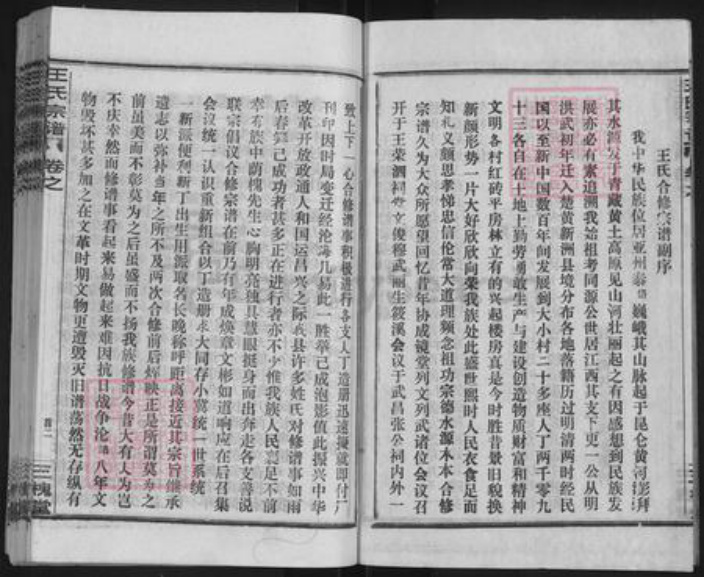 王氏合修宗谱副序
我中华民族位居亚州泰岳巍峨其山脉起于昆仑黄河澎拜
其水源发于青藏黄土高原见山河壮丽起之有因感想到民族发
展亦必有素追溯我始祖考同源公世居江西其支下更一公从明
洪武初年迁入楚黄新洲县境分布各地落籍历过明清两时经民
国以至新中国数百年间发展到大小村二十多座人丁两千零九
十三各自在土地上勤劳勇敢生产与建设创造物质财富和精神
文明各村红砖平房林立有的兴起楼房真是今时胜昔景旧貌换
新颜形势一片大好欣欣向荣我族处此盛世熙时人民衣食足而
知礼义颇思孝悌忠信伦常大道理频念祖功宗德水源木本合修
宗谱久为大众所愿望回忆昔年协成镜堂列文列武诸位会议召
开于王荣泗祠文俊穆武丽生筱溪会议于武昌张公祠内外一
致上下一心合修谱事积极进行各支人丁造册迅速攟就即付厂
刊印因时局变迁经沧海几易此一胜举已成泡影值此振兴中华
改革开放政通人和国运昌兴之际我县许多姓氏对修谱事如雨
后春笋已成功者甚多正在进行者亦不少惟我族人民衷足不前
幸有族中荫槐先生心胸明亮独具慧眼挺身而出奔走各支善说
联宗倡议合修宗谱在前乃有年成焕章文彬如道响应在后召集
会议统一认识重新组合以丁造册求大同存小异统一世系统
一新派便利新丁出生用派取名长晚称呼距离接近其宗旨继承
遗志以弥补当年之所不及两次合修前后辉映正是所谓莫为之
前虽美而不彰莫为之后虽盛而不扬我族修谱今昔大有人为岂
不庆幸然而修谱事看起来易做起来难因抗日战争沦陷八年文
物毁坏甚多加之在文革时期文物更遭毁灭旧谱荡然无存纵有
王氏宗谱 卷之
三槐堂